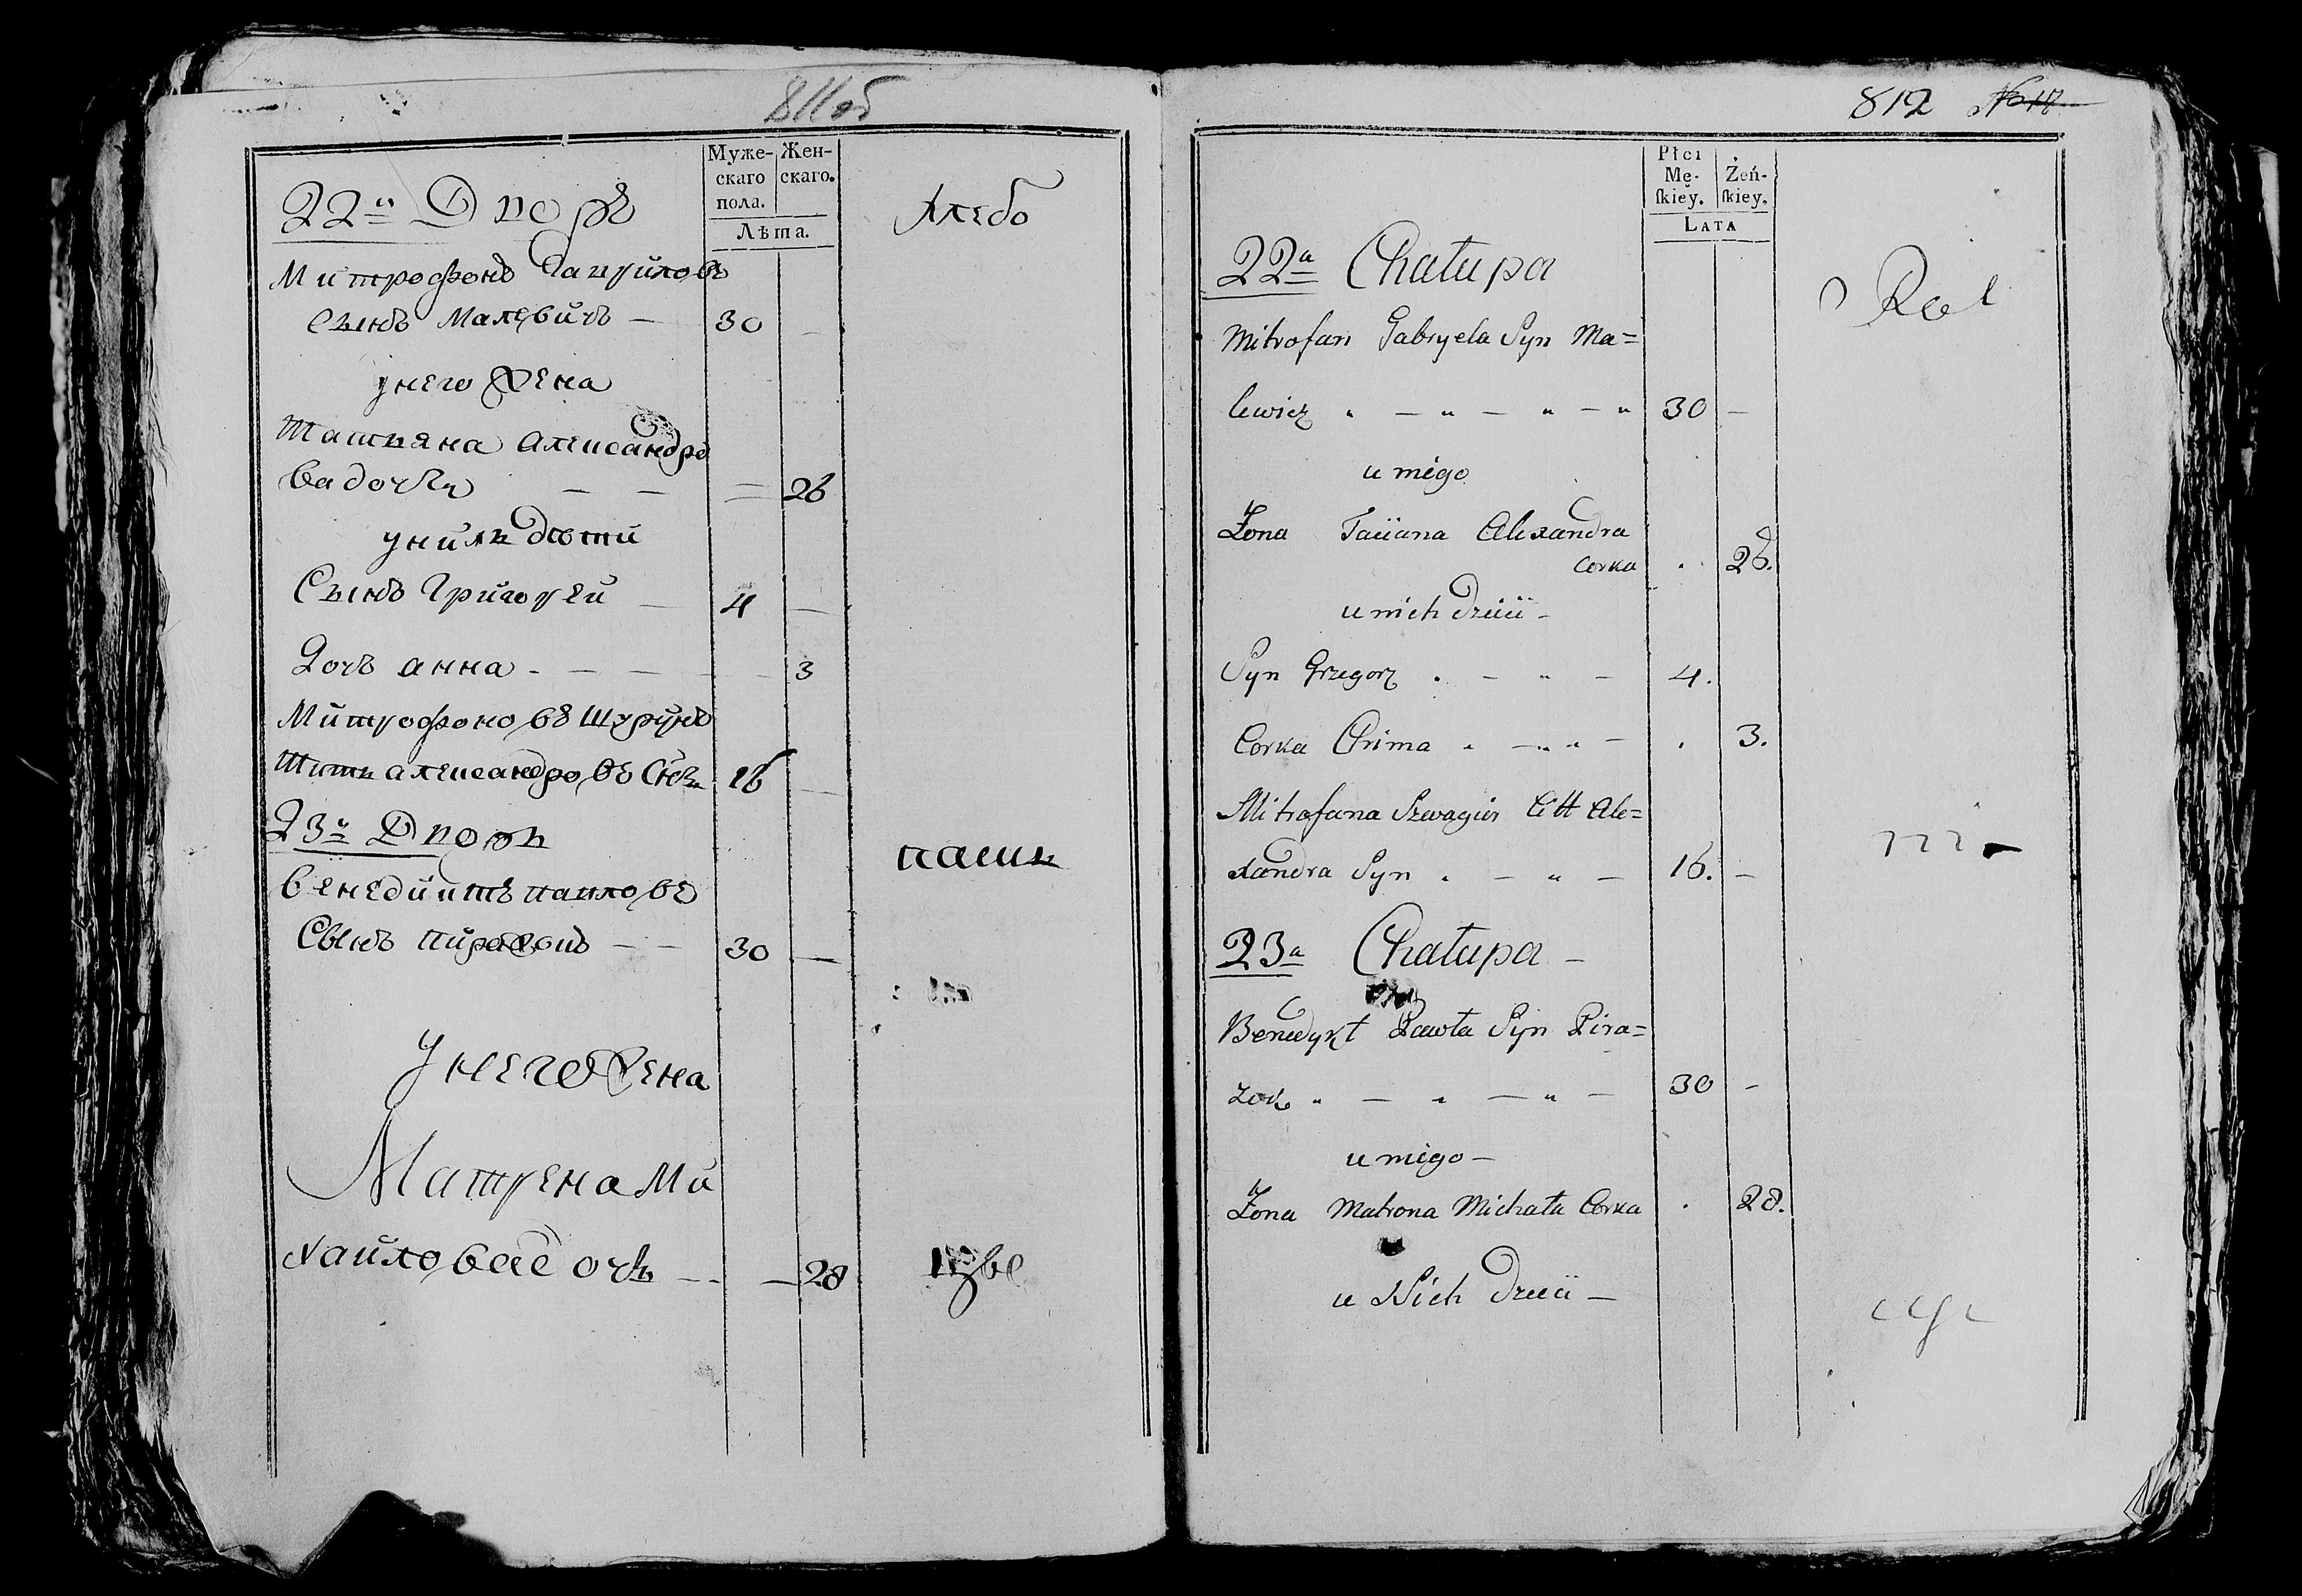 811об
Муже-
скаго
пола.
Жен-
скаго.
Лѣта.
22й Дворъ
Хлебо
Митрофонъ Гаврйловъ
Сынъ Малевичъ — 30 —
унего Жена
Татьяна Алеѯандро
ва дочь — — = 26
унйхъ дѣтй
Сынъ Григорей — 4 —
Дочъ Анна - — — — — 3
Мйтрофоновъ Шурйнъ
Титъ Алеѯандровъ Снъ 16 —
23й Дворъ
пашн
Венедйктъ Павловъ
Сынъ Пиражокъ — — 30 —
Унего Жена
Матрена Ми
хайлова дочь — — — 28
812 No 17
Płci
Mę-
skiey.
Żeń-
skiey.
LATA
22a Chałupa
Rol
Mitrofan Gabryela Syn Ma=
lewicz " — " — " — " 30 —
u niego
Żona Taciana Alexandra
Corka . 26.
u nich dzieci -
Syn Grzegorz . - " - 4.
Corka Anna . - " " - . 3.
Mitrofana Szwagier Titt Ale=
xandra Syn . - " - 16. -
23a Chałupa -
Benedykt Pawła Syn Pira=
zok " — " — " - 30 -
u niego -
Żona Matrona Michała Corka . 28.
u Nich dzieci -